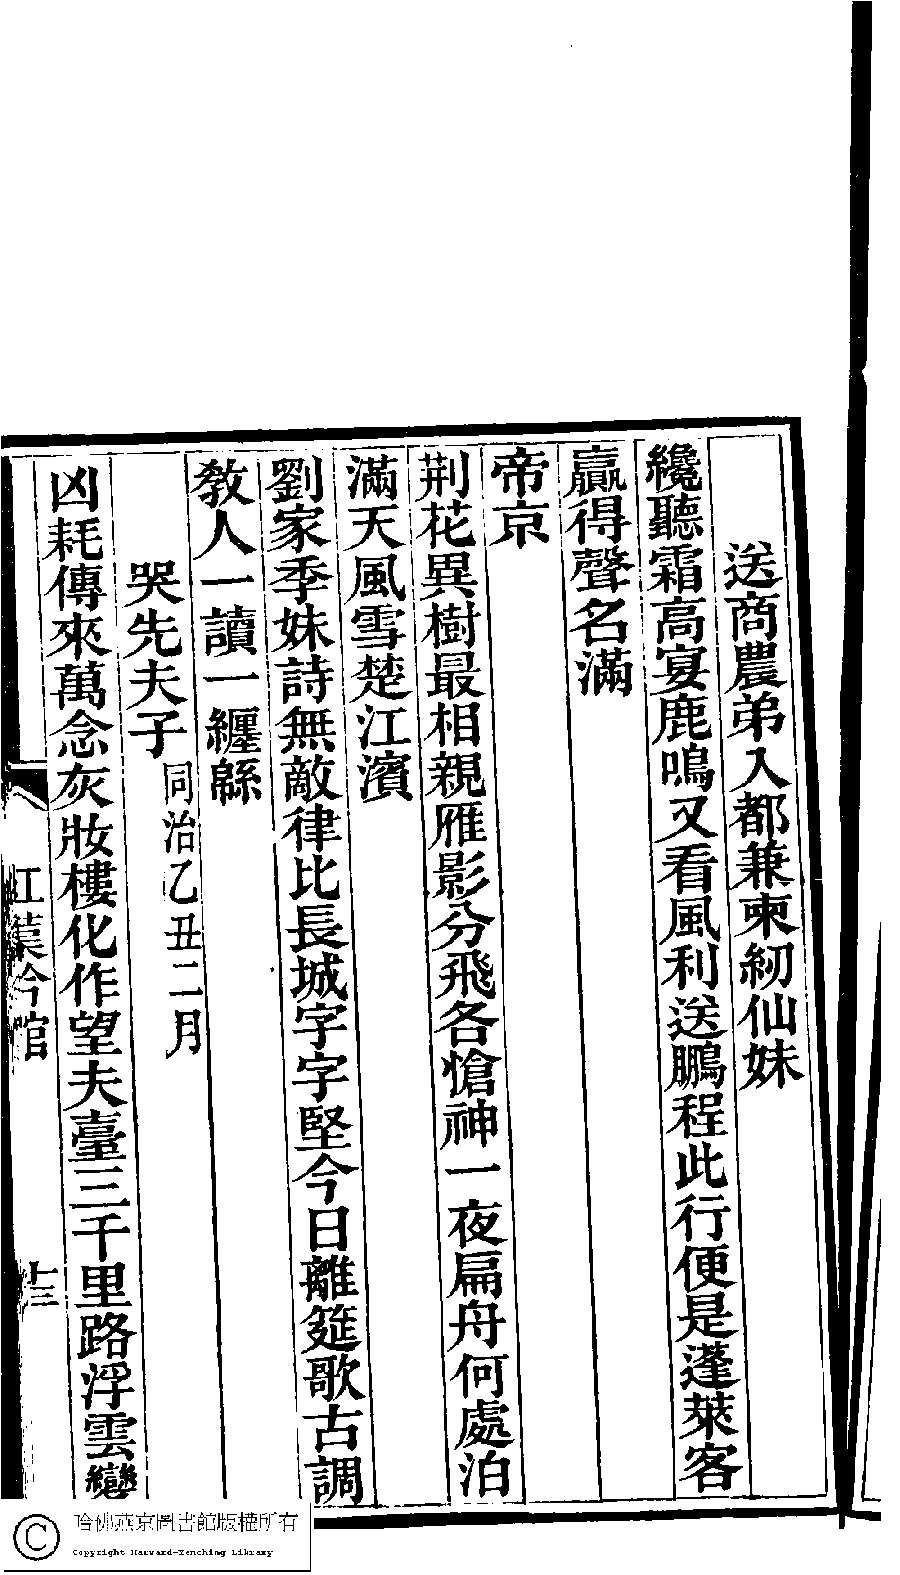 送商農弟入都兼柬紉仙妹
纔聽霜高宴鹿鳴又看風利送鵬程此行便是蓬萊客
贏得聲名滿
帝京
荆花異樹最相親雁影分飛各愴神一夜扁舟何處泊
滿天風雪楚江濱
劉家季妹詩無敵律比長城字字堅今日離筵歌古調
敎人一讀一纏緜
哭先夫子同治乙丑二月
凶耗傳來萬念灰妝樓化作望夫臺三千里路浮雲變
紅葉吟館
十三
哈佛燕京圖書館版權所有
Copyright Harvard-Yenching Library